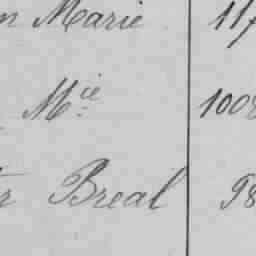 n Marie 117
Mie 1008
r Breal 98